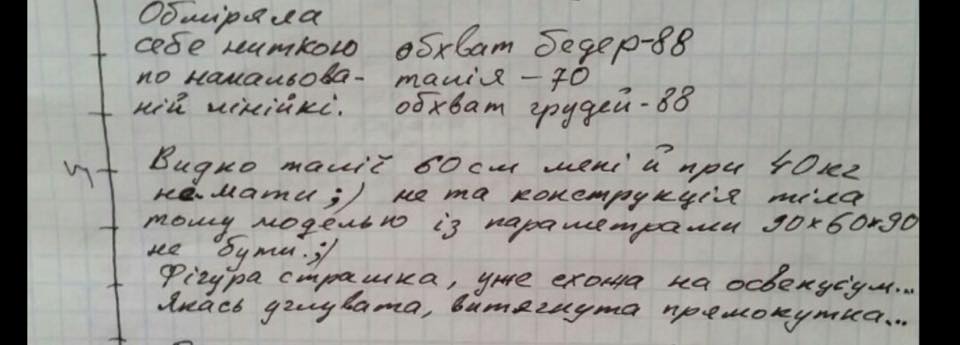 Обміряла
себе ниткою обхват бедер-88
по намальова- талія-70
ній лінійкі. обхват грудей-88
Видко талії 60 см мені й при 40 кг
не мати ;) не та конструкція тіла
тому моделью із параметрами 90х60х90
не бути. ;)
Фігура страшка, уже схожа на освенцісум...
Якась углувата, витягнута прямокутна...